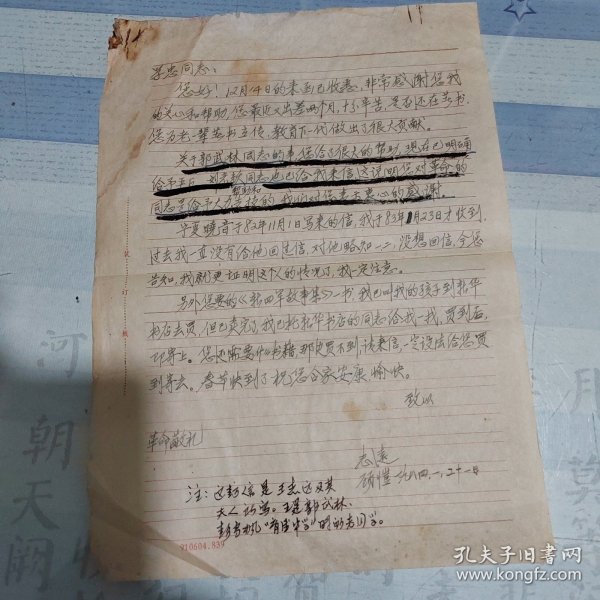 学忠同志:
您好!12月14日的来函已收悉,非常感谢您我
的关心和帮助,您最近又出差两个月,十分辛苦,是否还在写书,
您为老一辈著书立传,教育下一代做出了很大贡献。
关于郭武林同志的事,您给了很大的帮助,现在已明确
同志是给予大力支持的,我们对您表示衷心的感谢。
帮助和
华夏晓音于82年11月1日写来的信,我于83年1月23日才收到,
过去我一直没有给他回过信,对他略知一二,没想回信,今您
告知,我就更证明这个人的情况了,我一定注意。
另外您要的《新四军故事集》一书,我已叫我的孩子到新华
书店去买,但已卖完了,我已托新华书店的同志给我一找,买到后,
即寄上。您还需要什么书籍,那里买不到,请来信,一定设法给您买
到寄去。春节快到了祝您合家安康,愉快。
致以
革命敬礼
志远
注:这封信是王志远及其
夫人
同学。
910604.839
装 订 线
河
朝
天
阙
孔夫子旧书网
www.kongfz.com